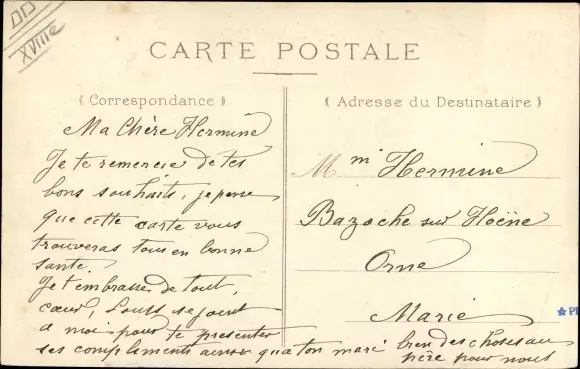 XVIIIe
CARTE POSTALE
( Correspondance )
( Adresse du Destinataire )
Ma Chère Hermine
Je te remercie de tes
bons souhaits, je pense
que cette carte vous
trouveras tous en bonne
santé.
Je t'embrasse de tout,
cœur, Louis se joint
a moi pour te presenter
ses compliments ainsi qua ton mari bien des choses au
père pour nous
Mm Hermine
Bazoche sur Hoëne
Orne
Marie